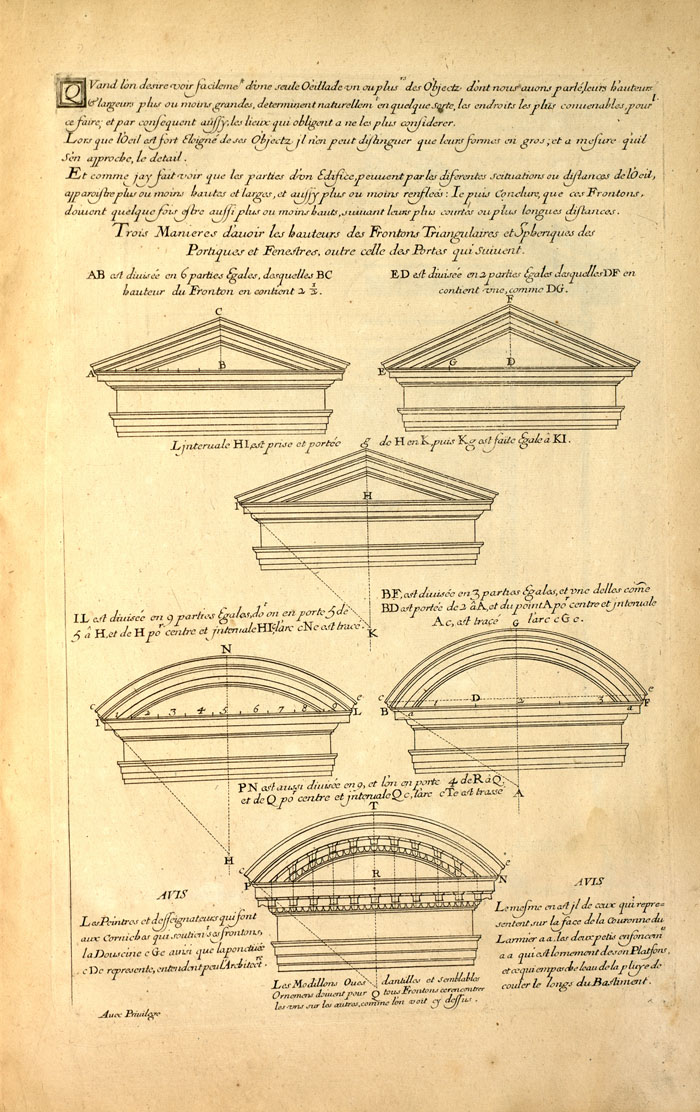 QVand l'on desire voir facileme.t d'une seule Oeillade vn ou plus.rs des Objectz dont nous auons parlé, leurs hauteurs
et largeurs plus ou moins grandes, determinent naturellem.t en quelque sorte, les endroits les plus conuenables, pour
ce faire; et par consequent aussy, les lieux qui obligent a ne les plus considerer.
Lors que l'Oeil est fort Eloigné de ses Objectz jl n'en peut distinguer que leurs formes en gros; et a mesure qu'il
s'en approche, le detail.
Et comme jay fait voir que les parties d'vn Edifice, peuuent par les diferentes scituations ou distances de l'Oeil,
apparoistre plus ou moins hautes et larges, et aussy plus ou moins renflées: Ie puis Conclure, que ces Frontons,
doiuent quelque fois estre aussi plus ou moins hauts, suiuant leurs plus courtes ou plus longues distances.
Trois Manieres d'auoir les hauteurs des Frontons Triangulaires et Spheriques des
Portiques et Fenestres, outre celle des Portes qui suiuent.
AB est diuisée en 6 parties Egales, desquelles BC
hauteur du Fronton en contient 2 1/2.
ED est diuisée en 2 parties Egales desquelles DF en
contient vne, comme DG.
C
F
A
B
E
G
D
L'jnteruale HI, est prise et portée
g
de H en K, puis Kg est faite Egale à KI.
I
H
K
I.L est diuisée en 9 parties Egales, do.t on en porte 5 de
5 à H, et de H po.r centre et jnteruale HI, l'arc cNe est tracé.
BF, est diuisée en 3 parties Egales, et vne delles come
BD est portée de 2 à A, et du point A po.r centre et jnteruale
Ac, est tracé
G
l'arc cGe.
N
c
e
I
1
2
3
4
5
6
7
8
9
L
c
e
B
a
1
D
2
3
a
F
H
A
PN est aussi diuisée en 9, et l'on en porte 4 de R à Q,
et de Q po.r centre et jnteruale Qc, l'arc cTe est trassé
T
c
e
P
R
N
Q
AVIS
Les Peintres et desseignateurs qui font
aux Corniches qui soutien.t ses frontons,
la Doucine cGe ainsi que la ponctuée
cDe represente, entendent peu l'Architect.re
AVIS
Le mesme en est jl de ceux qui repre=
sentent sur la face de la Couronne du
Larmier a a. les deux petis enfoncem.ts
a a qui est l'ornement de son Platfons,
et ce qui empesche l'eau de la pluye de
couler le longs du Bastiment.
Les Modillons Oues dantilles et semblables
Ornemens doiuent pour tous Frontons ce rencontrer
les vns sur les autres, comme l'on voit cy dessus.
Auec Priuilege